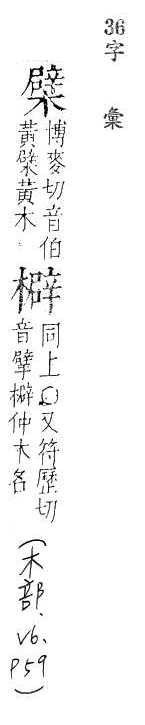 36字 彙
檗
博麥切音伯
黃檗黃木
檘
同上○又符歷切
音擘檘仲木名
(木部、V6、P59)